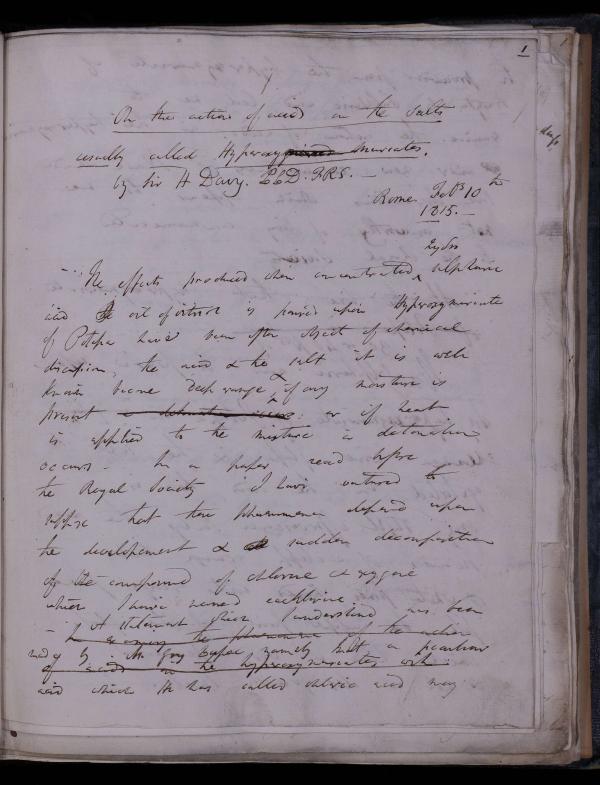 1
On the action of acids on the Salts
usually called Hyperoxymuriates.
by Sir H Davy. LLD. F.R.S. —
Rome Feb 10th
1815. —
Hydro
The effects produced when concentrated sulphuric
acid or oil of vitriol is poured upon Hyperoxymuriate
of Potassa have been often object of chemical
discussion, the acid & the salt it is well
known become deep orange if any moisture is
present : or if heat
is applied to the mixture a detonation
occurs — In a paper read before
the Royal Society I have ventured to
suppose that these phenomena depend upon
the developement & sudden decomposition
of the compound of chlorine & oxygene
which I have named euchlorine
— A statement since I understand has been
the phenomena of the action
made by M. Gay Lussac namely that a peculiar
of acids on the hyperoxymuriates with
acid which He has called chloric acid may